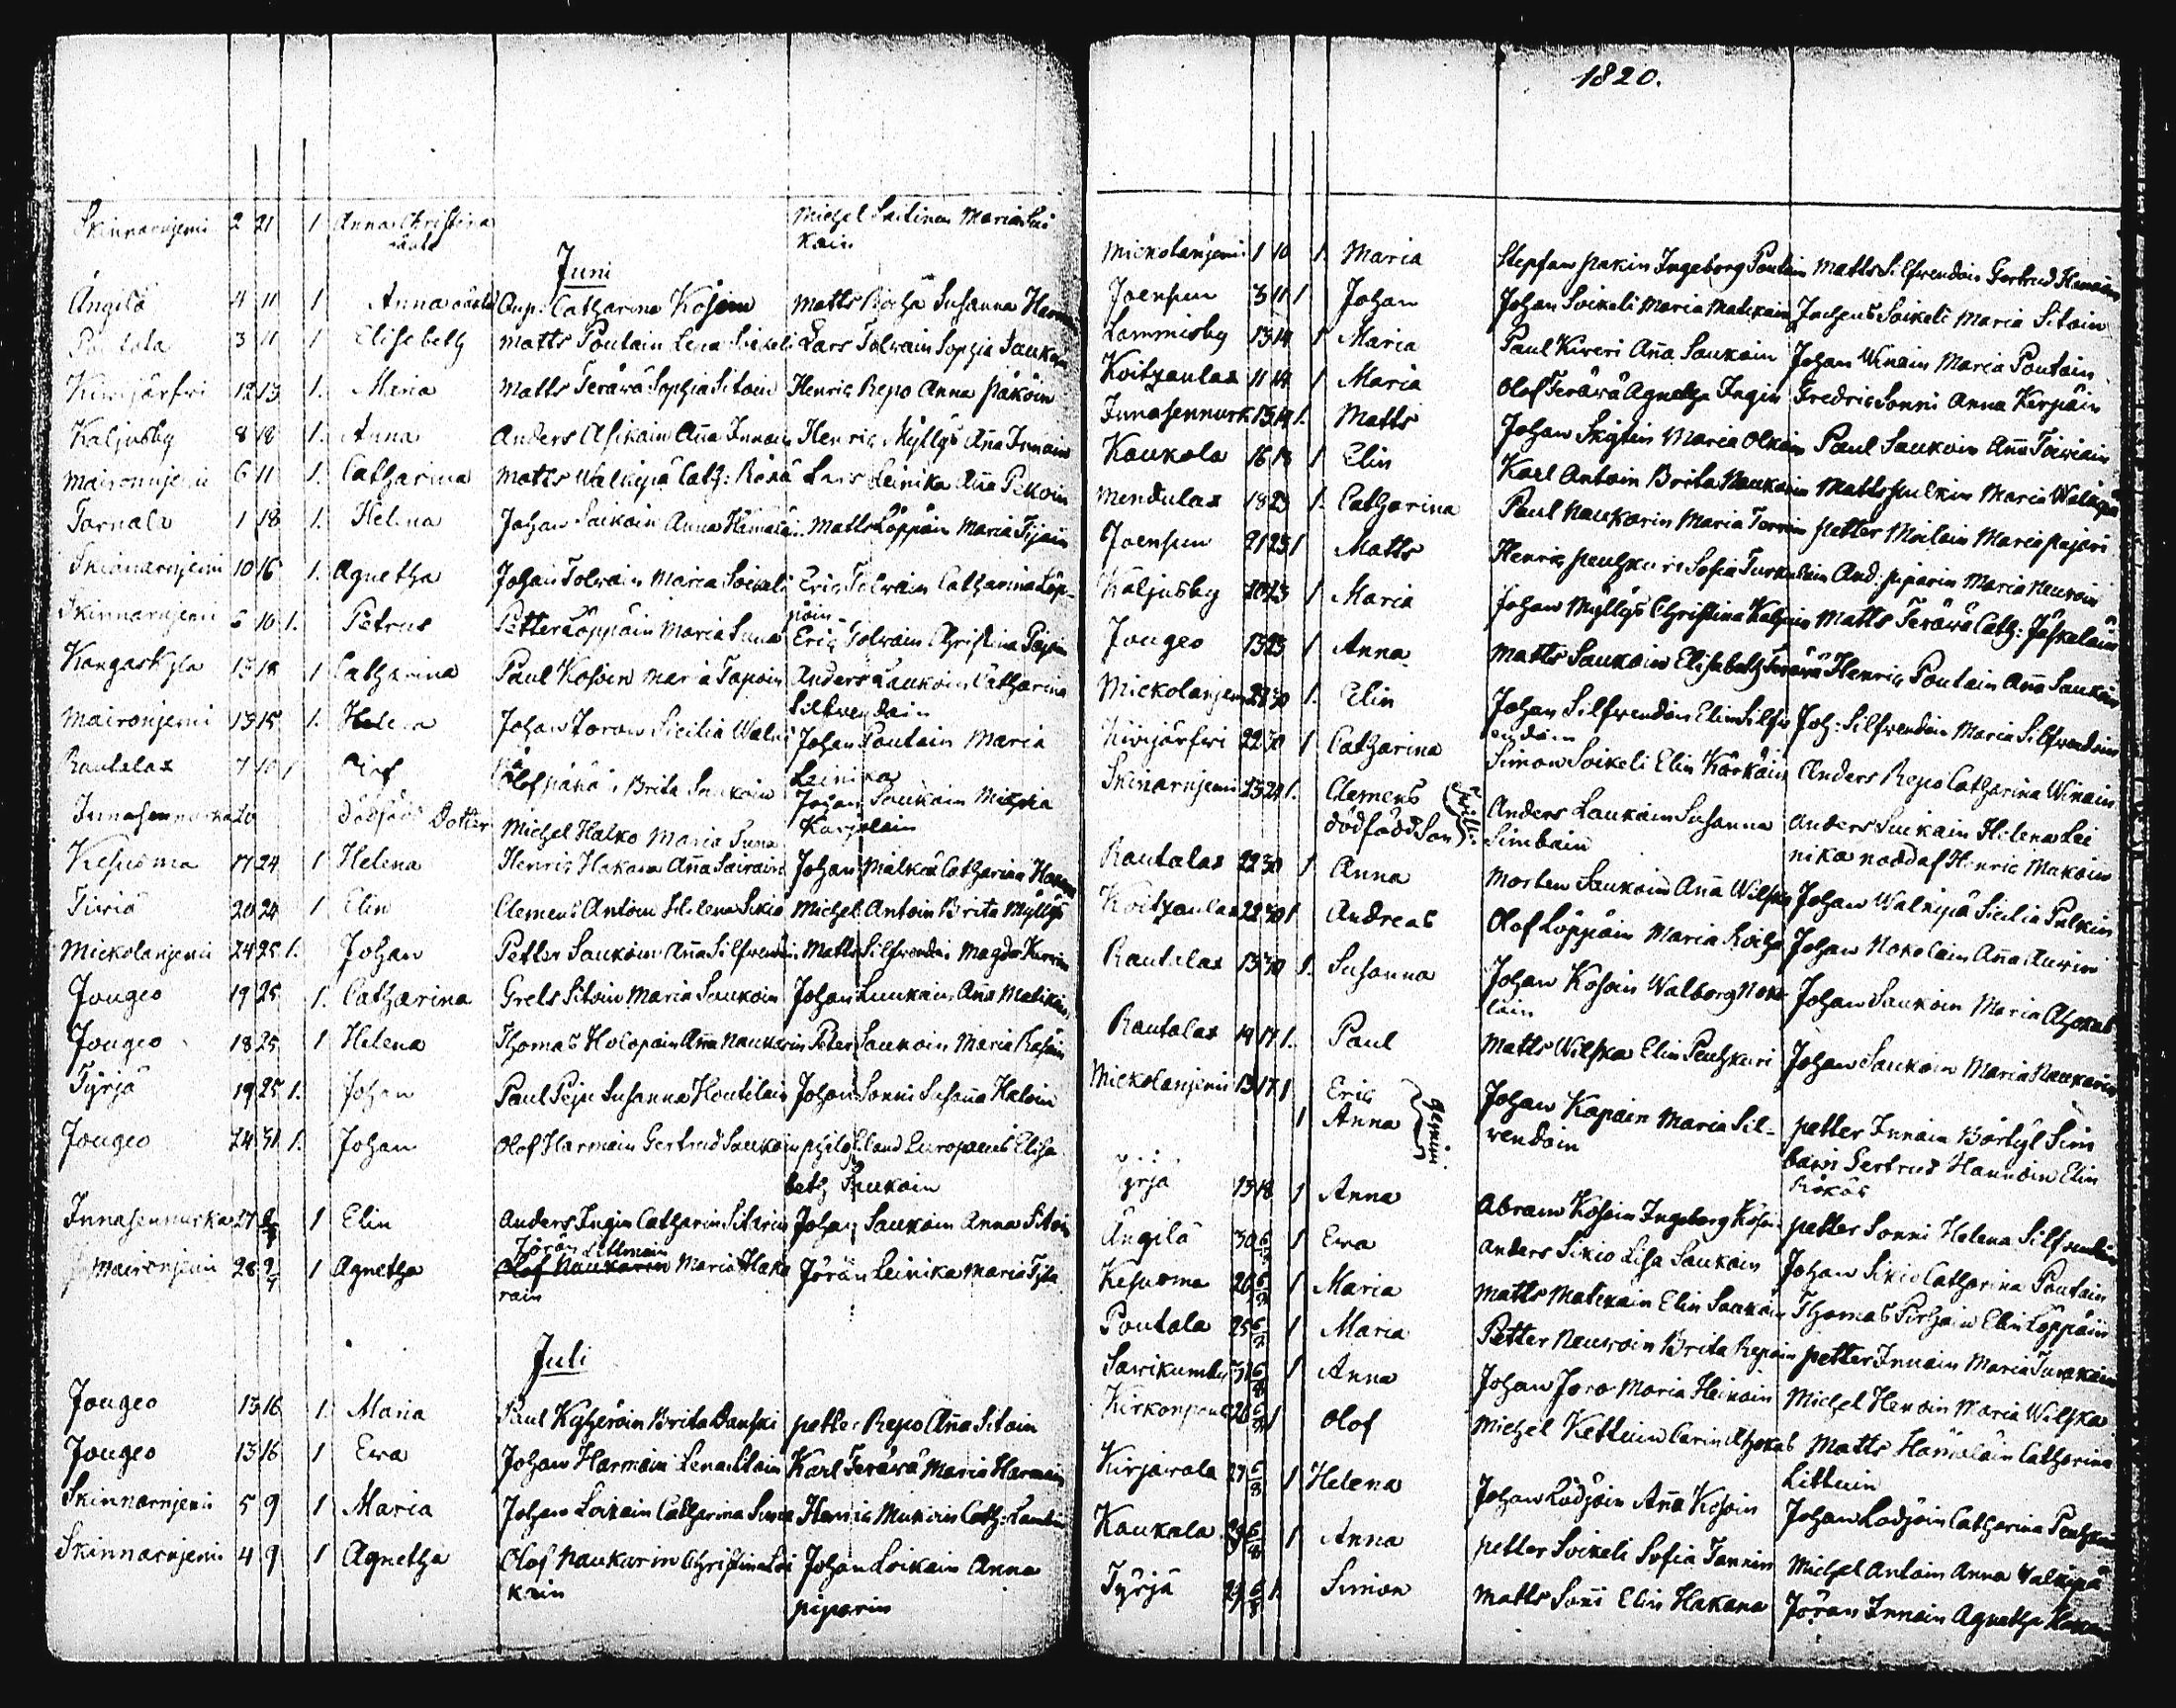 Skinnarnjemi 2 21 1 Anna Christina Michel Saitinen Maria Soi
oäkta kain
Juni
Ängilä 4 11 1 Anna oäkta Enp: Catharina Kosoin Matts Roicha Susanna Harm
Poutala 3 11 1 Elisabeth Matts Poutain Lena Soikeli Lars Tolwain Sophia Saukoin
Kiwijärfwi 12 13 1. Maria Matts Teräwä Sophia Sitoin Henric Repo Anna Päköin
Kaljusby 8 18 1. Anna Anders Asikain Aña Innain Henric Myllys Aña Innain
Maironnjemi 6 11 1. Catharina Matts Walkipä Cath: Lars Leinika Aña Pekoin
Tarnala 1 18 1. Helena Johan Saikoin Anna Hämälä Matts Löppöin Maria Tijain
Skinnarnjemi 10 16 1. Agnetha Johan Tolwain Maria Soikeli Eric Tolwain Catharina Löp-
pöin
Skinnarnjemi 6 10 1. Petrus Petter Löppöin Maria Suna Eric Tolwain Christina Pajain
Kangaskyla 15 18 1 Catharina Paul Kosoin Maria Tapoin Anders Laukoin Catharina
Silfwendoin
Maironjemi 13 15 1. Helena Johan Joron Sicilia Walki Johan Poutain Maria
pä Leinika
Rautalax 7 10 1 Olof Olof Brita Saukoin Johan Saukoin Michlia
Karjalain
Innasennurka 20 dödfödd Dotter Michel Halko Maria Suna
Kesusma 17 24 1 Helena Henric Hakana Aña Sairain Johan Malkiä Catharina Hakana
Tiuriä 20 24 1 Elin Clemens Antoin Helena Sikiä Michel Antoin Brita Myllys
Mickolanjemi 24 25 1. Johan Petter Saukoin Aña Silfwendoin Matts Silfwendoin Magda Kurrin
Jougeo 19 25 1. Catharina Grels Sitoin Maria Saukoin Johan Luukain Aña Matikain
Jougeo 18 25 1 Helena Thomas Holopain Aña Naukarin Peter Saukoin Maria Rasain
Tyrjä 19 25 1. Johan Paul Peju Susanna Houtilain Johan Sonni Susaña Haloin
Jougeo 24 31 1. Johan Olof Harmain Gertrud Saukoin phil: Eland Europaeus Elisa
beth Saukoin
Innasennurka 27 1 Elin Anders Ingin Catharin Sitarin Johan Saukoin Anna Sitoin
Jörän Littmain
Maironjemi 28 1 Agnetha Olof Naukarin Maria Haka Jörän Leinika Maria Tyta
rain
Juli
Jougeo 13 16 1. Maria Paul Kyheröin Brita Danski petter Repo Aña Sitoin
Jougeo 13 16 1 Ewa Johan Harmain Lena Sitoin Karl Teräwä Maria Harmain
Skinnarnjemi 5 9 1 Maria Johan Loikain Catharina Suna Henric Mukoin Cath:
Skinnarnjemi 4 9 1 Agnetha Olof Naukarin Christina Loi Johan Loikain Anna
kain piparin
1820.
Mickolanjemi 1 10 1. Maria Stephan Pakin Ingeborg Poutain Matts Silfwendoin Gertrud Hannoin
Joensun 3 11 1 Johan Johan Soikeli Maria Matikain Jochens Soikeli Maria Sitoin
Lammisby 13 14 1 Maria Paul Kiweri Aña Saukoin Johan Winain Maria Poutain
Koitzanlax 11 14 1 Maria Olof Teräwä Agnetha Ingin Fredric Sonni Anna Kerpäin
Innasennurk 13 14 1. Matts Johan Skytin Maria Olkoin Paul Saukoin Aña Toiwiain
Kaukola 16 18 1 Elin Karl Antoin Brita Naukarin Matts Pulkin Maria Walkipä
Mendulax 18 23 1. Catharina Paul Naukarin Maria Terrin petter Moilain Maria Pajari
Joensun 21 23 1 Matts Henric Peuhkuri Sofia Turkulain And. Piparin Maria Neuwoin
Kaljusby 20 23 1 Maria Johan Myllys Christina Kaljuin Matts Teräwä Cath: Jäskeläin
Jougeo 13 23 1 Anna Matts Saukoin Elisabeth Teräwä Henric Poutain Aña Saukoin
Mickolanjem 28 30 1. Elin Johan Silfwendoin Elin Silfw Joh: Silfwendoin Maria Silfwendoin
endoin
Kiwijärfwi 22 30 1 Catharina Simon Soikeli Elin Karkain Anders Repo Catharina Winain
Skinarnjemi 23 24 1. Clemens Anders Laukoin Susanna Anders Luikain Helena Lei
dödfödd Son Simbain nika nöddöpt Henric Makoin
Rautalax 22 30 1 Anna Morten Saukoin Aña Wilska Johan Walkipä Sicilia Pulkin
Koitzanlax 22 30 1 Andreas Olof Löppöin Maria Roicha Johan Nokelain Aña Auwin
Rautalax 13 30 1. Susanna Johan Kosoin Walborg Noke Johan Saukoin Maria Ahokas
lain
Rautalax 14 17 1. Paul Matts Wilska Elin Peuhkuri Johan Saukoin Maria Naukarin
Mickolanjemi 13 17 1 Eric Johan Kapain Maria Sil- petter Innain Börtyl Sim
1 Anna gemini wendoin bain Gertrud Hannoin Elin
Tyrjä 13 18 1 Anna Abram Kosoin Ingeborg Kosoin petter Sonni Helena Silfwendoin
Ängilä 30 6/8 1 Ewa Anders Sikio Lisa Saukoin Johan Sikio Catharina Poutain
Kesusma 26 6/8 1 Maria Matts Matikain Elin Saukoin Thomas Pirhoin Elin Löppöin
Poutala 25 6/8 1 Maria Petter Neuwoin Brita Repoin petter Innain Maria Turakain
Sarikumbu 31 6/8 1 Anna Johan Joro Maria Heinoin Michel Henoin Maria Wilska
Kirkonpuol 26 6/8 1 Olof Michel Kettuin Carin Ahokas Matts Hämälain Catharina
Littuin
Kirjawala 27 6/8 1 Helena Johan Lodjoin Aña Kosoin Johan Lodjoin Catharina Peuhkuri
Kaukala 29 6/8 1 Anna petter Soikeli Sofia Tannin Michel Antoin Anna Walkipä
Tyrjä 29 6/8 1. Simon Matts Soñi Elin Hakana Jöran Innain Agnetha